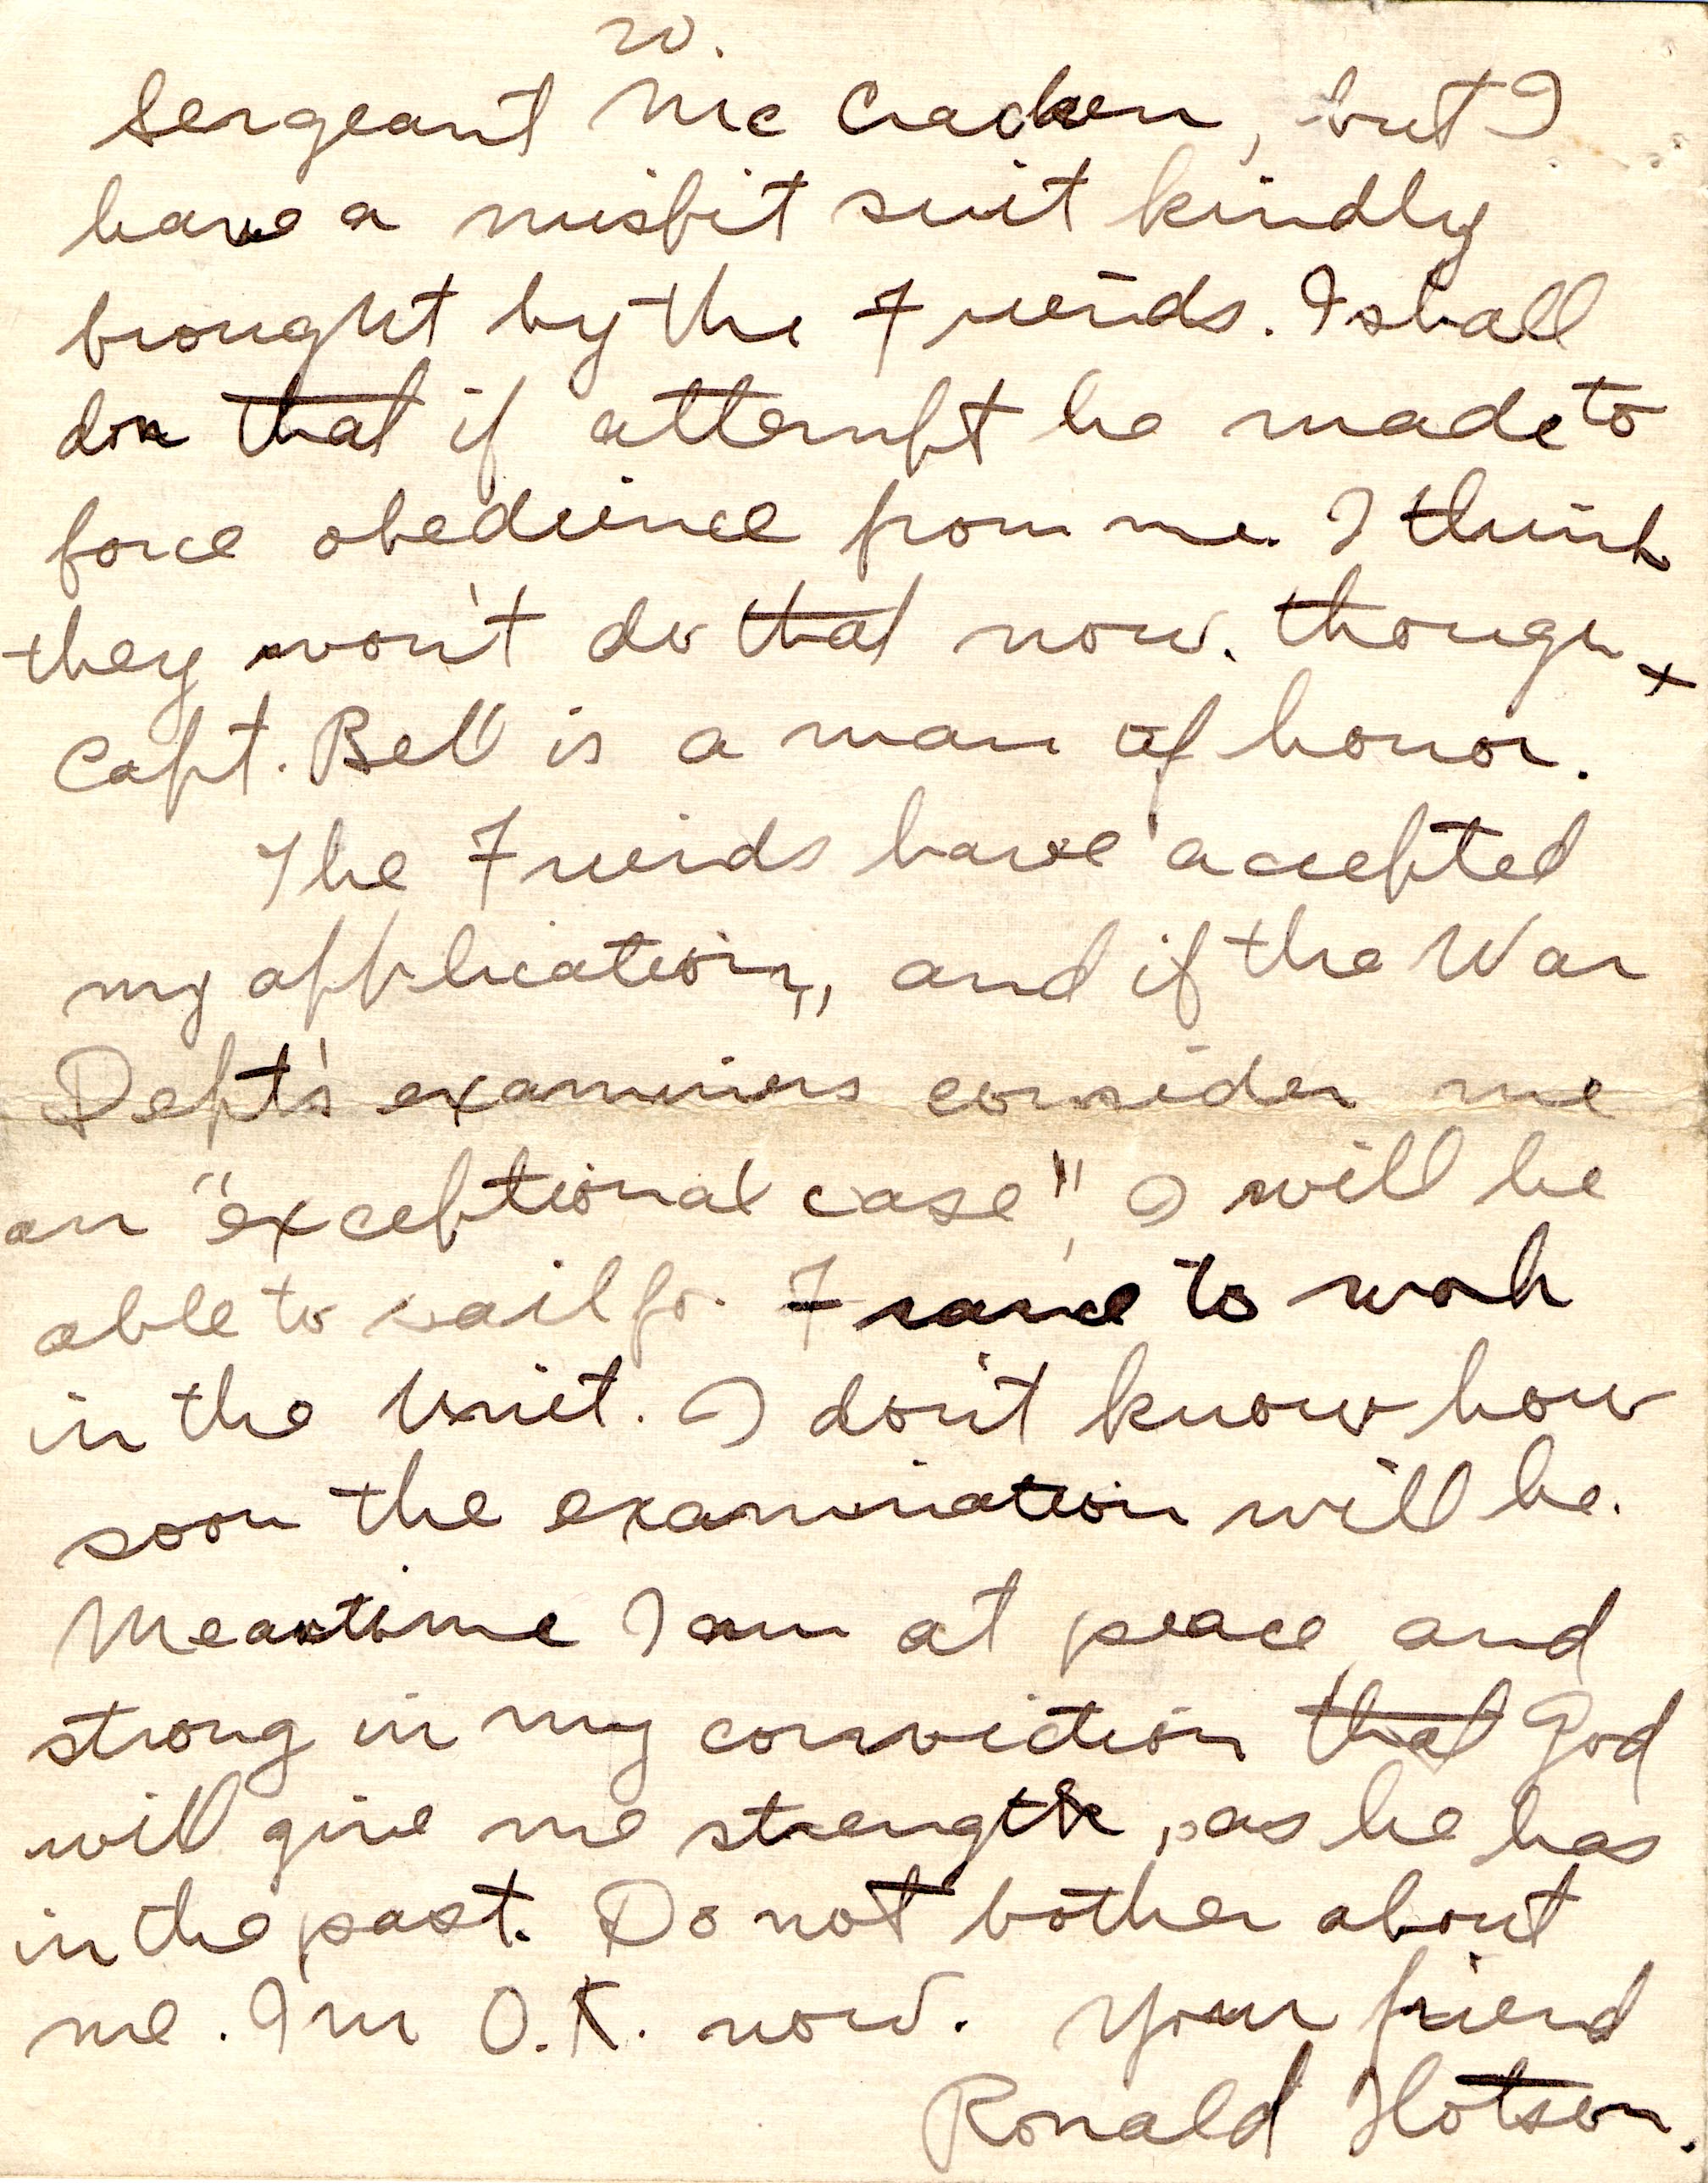 20.
Sergeant McCracken, but I
have a misfit suit kindly
brought by the Friends. I shall
don that if attempt be made to
force obedience from me. I think
they won't do that now. though +
Capt. Bell is a man of honor.
The Friends have accepted
my application, and if the War
Dept's examiners consider me
an "exceptional case", I will be
able to sail for France to work
in the Unit. I don't know how
soon the examination will be.
Meantime I am at peace and
strong in my conviction that God
will give me strength, as he has
in the past. Do not bother about
me. I'm O.K. now. Your friend
Ronald Hotson.